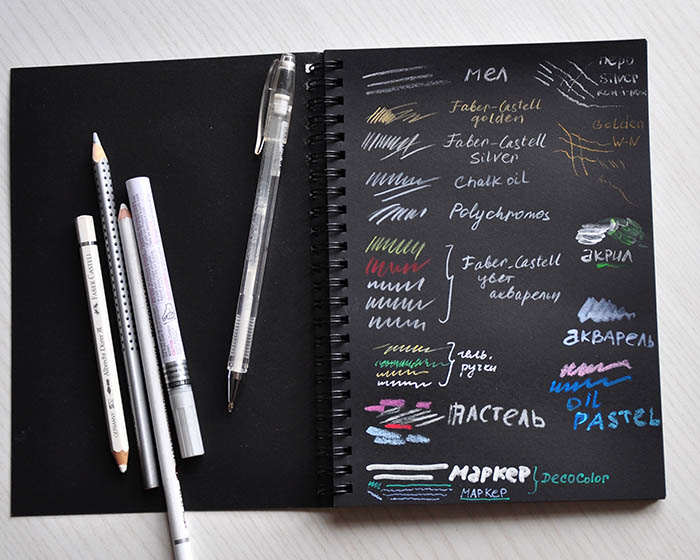 мел
Faber-Castell
golden
Faber-Castell
Silver
Chalk oil
Polychromos
Faber-Castell
цвет
акварельн
гель.
ручки
ПАСТЕЛЬ
МАРКЕР
МАРКЕР
DecoColor
перо
Silver
Golden
W-N
акрил
АКВАРЕЛЬ
OIL
PASTEL
FABER-CASTELL
Albrecht Dürer
GERMANY